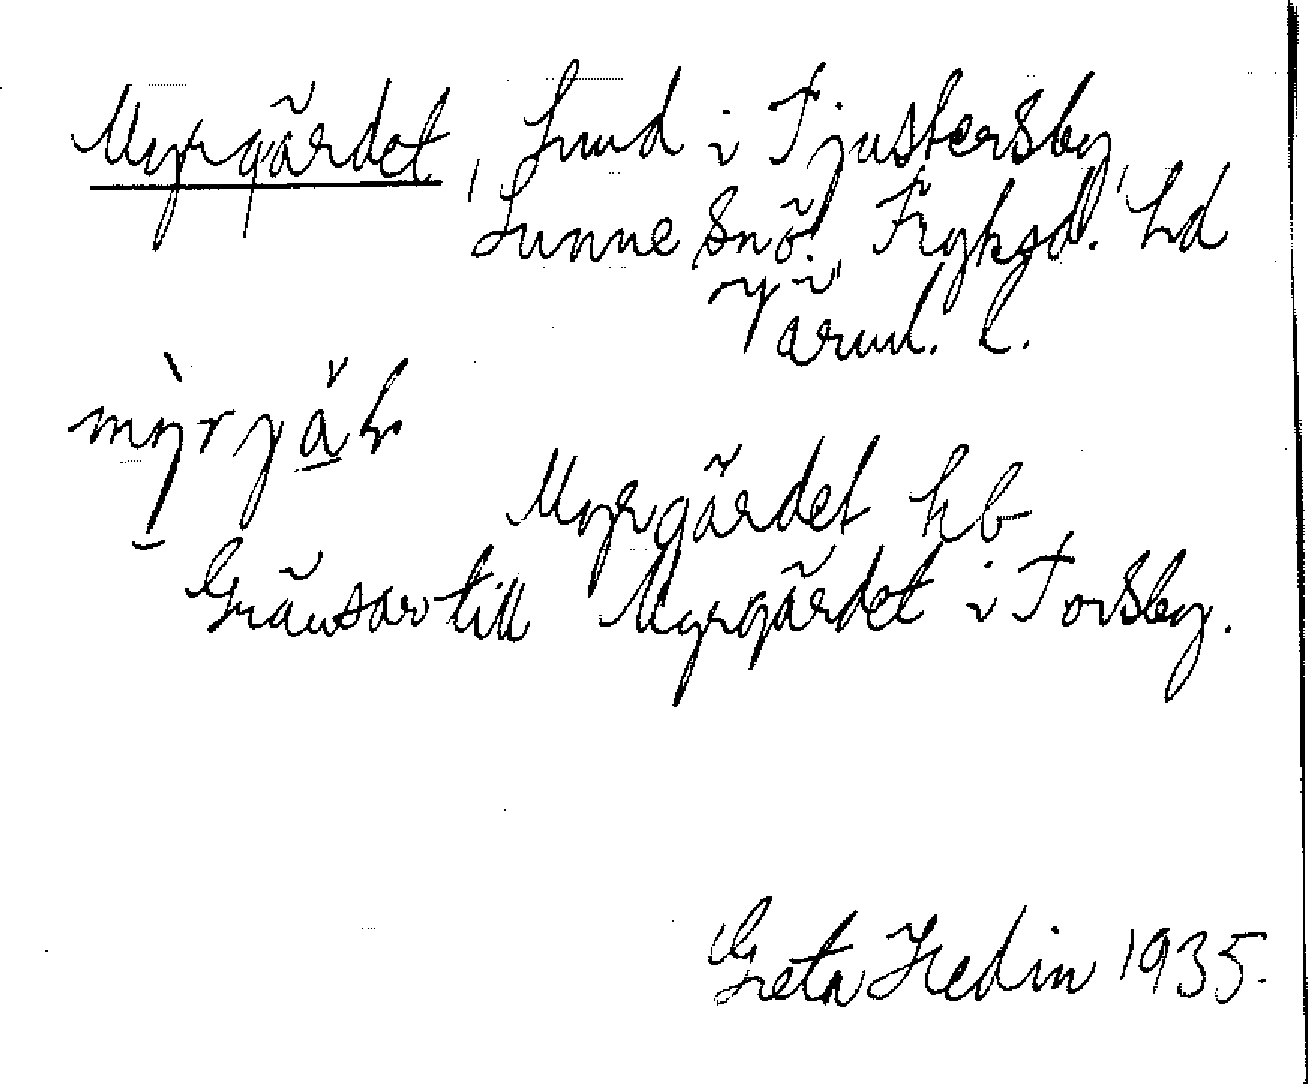 Myrgärdet, Lund i Tjustersby,
Sunne Snö. Fryksd. hd
Värml. l.
Myrgärdet hb
Gränsar till Myrgärdet i Torsby.
Greta Hedin 1935.